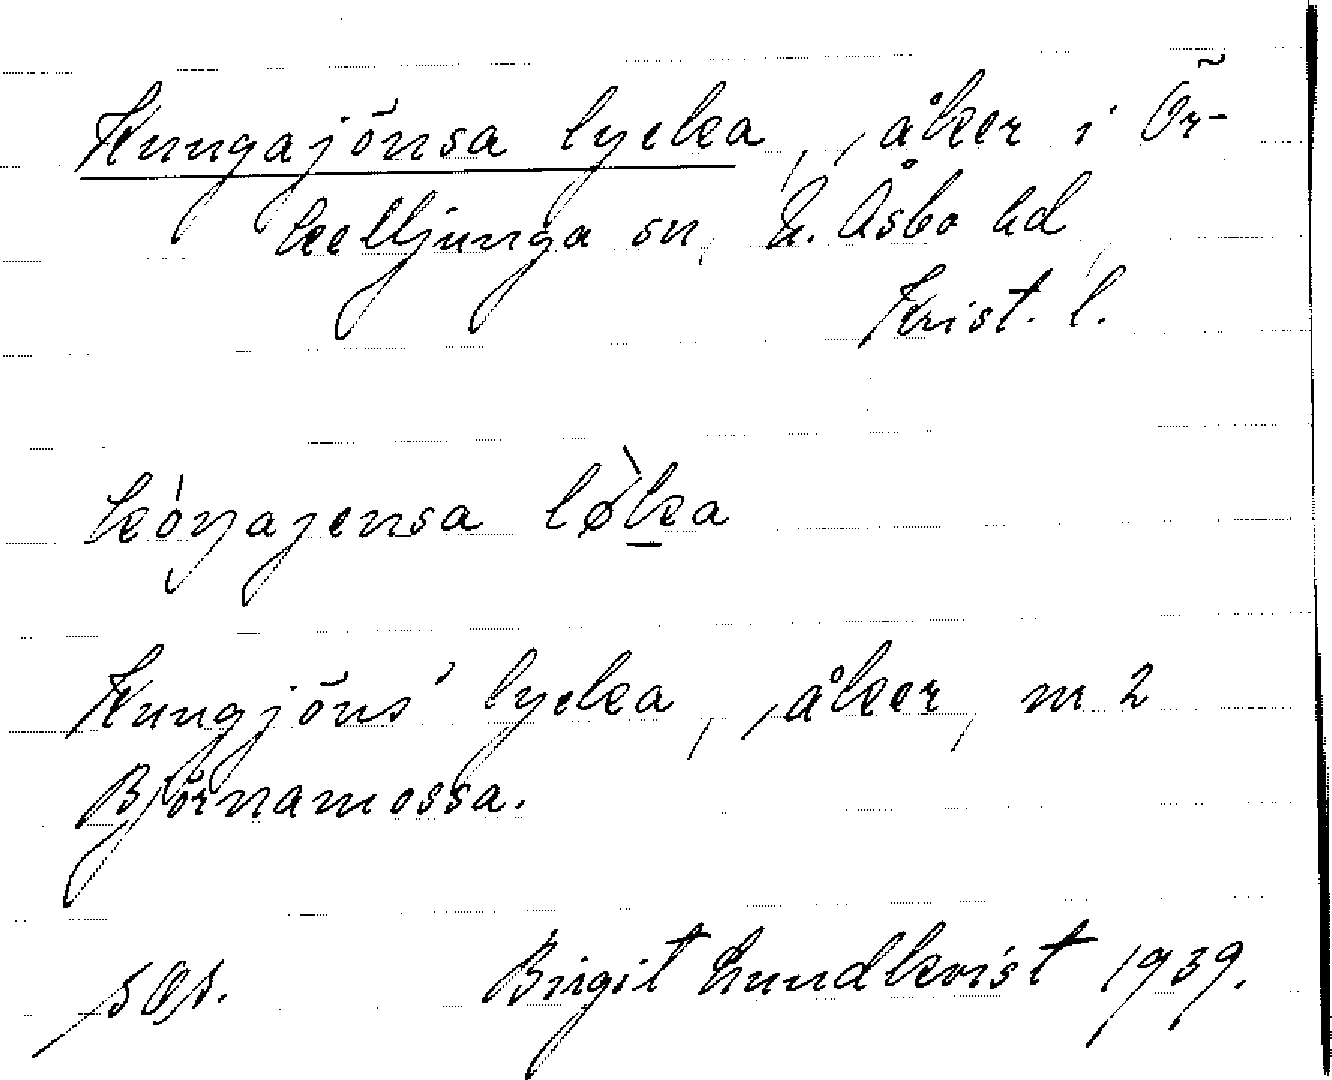 Kungajönsa lycka, åker i Ör-
kelljunga sn, N. Åsbo hd,
Krist. l.
kóŋajensa lø̀ka
Kungjöns' lycka, åker, m 2
Björnamossa.
Birgit Lundkvist 1939.